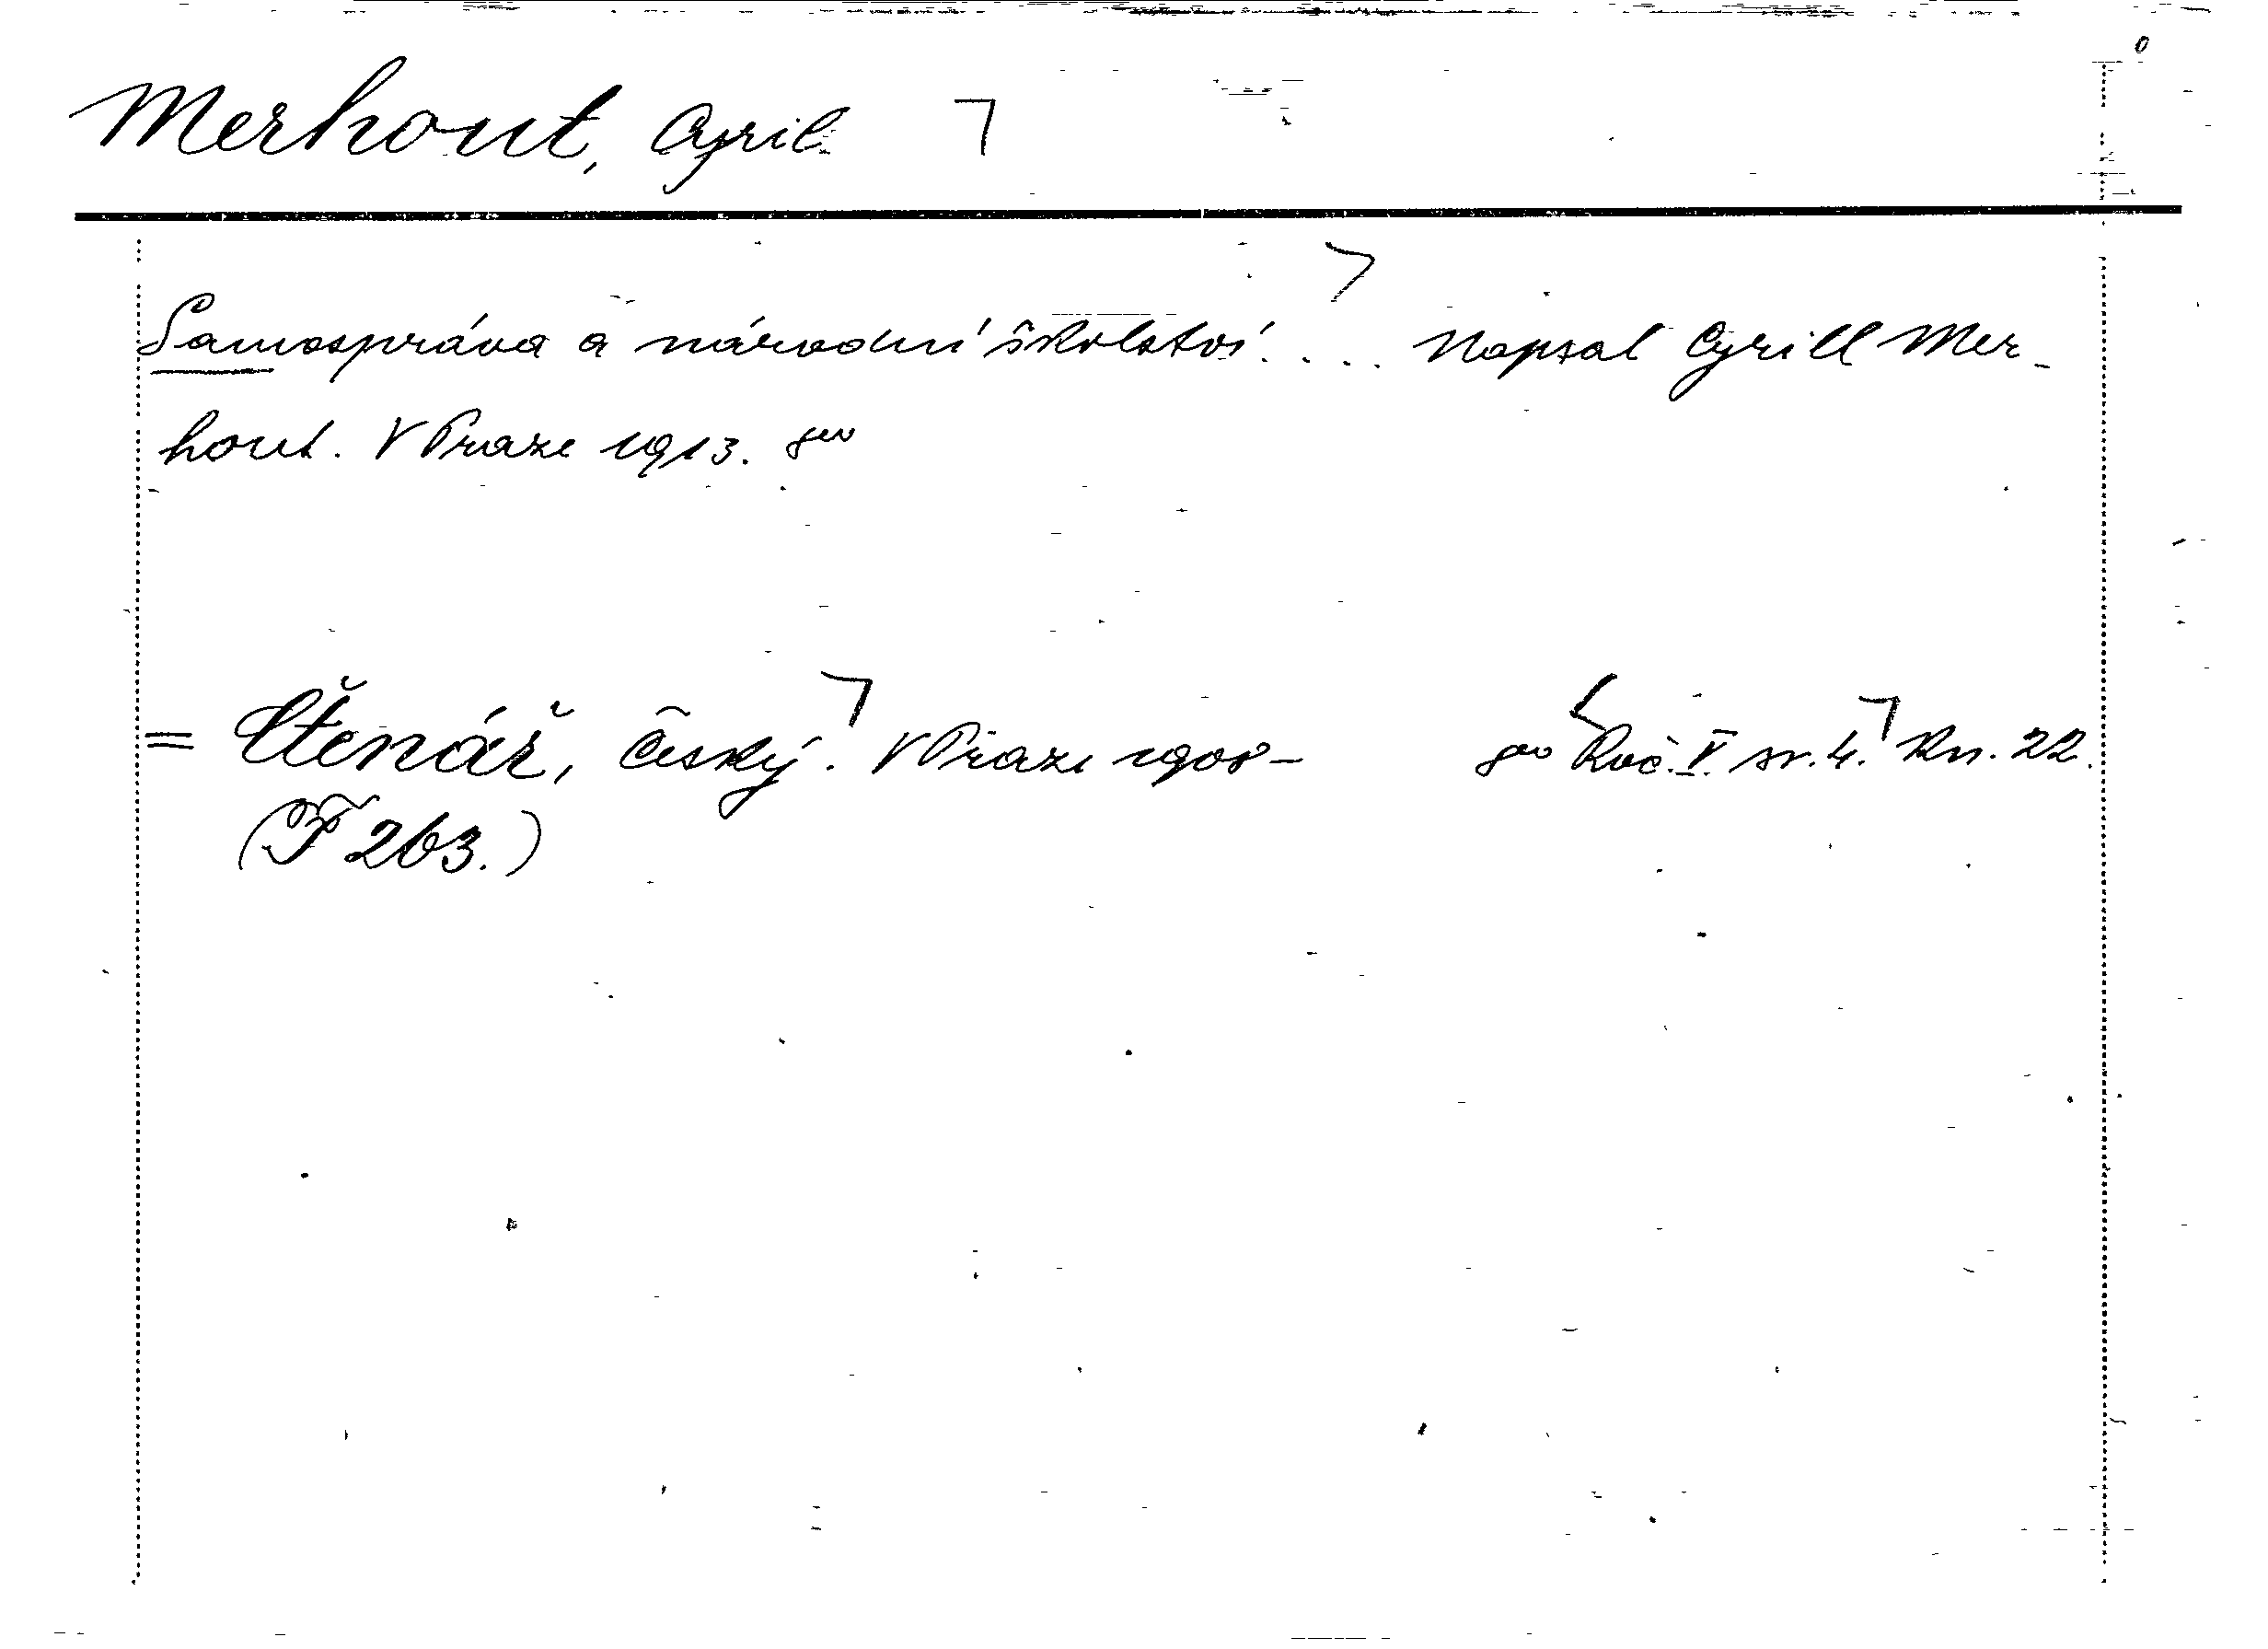 Merhout, Cyril
Samospráva a národní školství. . . . Napsal Cyrill Mer-
hout. V Praze 1913. 8vo
= Čtenář, Český. V Praze 1908- 8vo Roč. V. sv. 4. Kn. 22.
(F 263.)